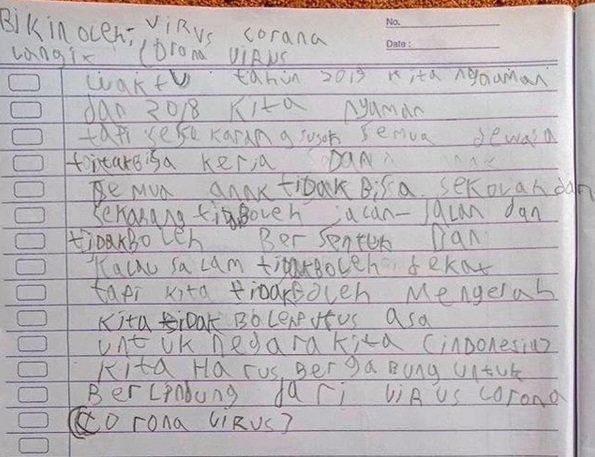 BIKIN OLEH: VIRUS corona
No.
Langix (corona VIRUS
Date:
waktu tahun 2019 kita nyaman
dan 2018 kita nyaman
tapi sekarang susah semua dewasa
tidak bisa kerja DAN
semua anak tidak Bisa sekolah dan
sekarang tidak boleh jalan-jalan dan
tidak Boleh Bersentuk Dan
Kalau salam tidak Boleh dekat
tapi kita tidak Boleh Mengerah
kita tidak Boleh putus asa
untuk negara kita (indonesia)
kita Harus Bergabung untuk
Berlindung dari VIRUS corona
(corona VIRUS)